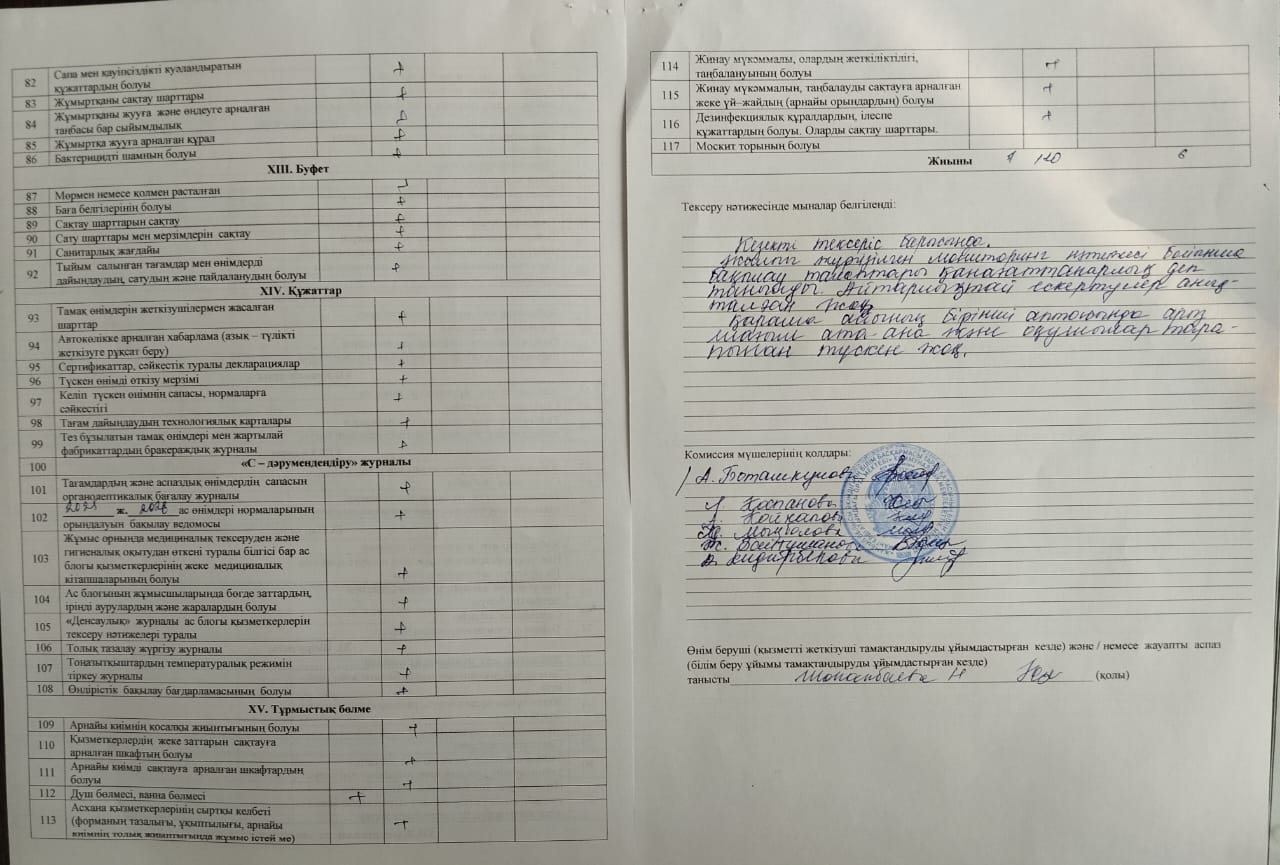 82 Сапа мен қауіпсіздікті куәландыратын +
құжаттардың болуы
83 Жұмыртқаны сақтау шарттары +
84 Жұмыртқаны жууға және өңдеуге арналған +
таңбасы бар сыйымдылық
85 Жұмыртқа жууға арналған құрал +
86 Бактерицидті шамның болуы +
XIII. Буфет
87 Мөрмен немесе қолмен расталған +
88 Баға белгілерінің болуы +
89 Сақтау шарттарын сақтау +
90 Сату шарттары мен мерзімдерін сақтау +
91 Санитарлық жағдайы +
92 Тыйым салынған тағамдар мен өнімдерді +
дайындаудың, сатудың және пайдаланудың болуы
XIV. Құжаттар
93 Тамақ өнімдерін жеткізушілермен жасалған +
шарттар
94 Автокөлікке арналған хабарлама (азық – түлікті +
жеткізуге рұқсат беру)
95 Сертификаттар, сәйкестік туралы декларациялар +
96 Түскен өнімді өткізу мерзімі +
97 Келіп түскен өнімнің сапасы, нормаларға +
сәйкестігі
98 Тағам дайындаудың технологиялық карталары +
99 Тез бұзылатын тамақ өнімдері мен жартылай +
фабрикаттардың бракераждық журналы
100 «С – дәрумендендіру» журналы
101 Тағамдардың және аспаздық өнімдердің сапасын +
органолептикалық бағалау журналы
102 ж. ас өнімдері нормаларының +
орындалуын бақылау ведомосы
103 Жұмыс орнында медициналық тексеруден және
гигиеналық оқытудан өткені туралы білгісі бар ас
блогы қызметкерлерінің жеке медициналық
кітапшаларының болуы +
104 Ас блогының жұмысшыларында бөгде заттардың, +
іріңді аурулардың және жаралардың болуы
105 «Денсаулық» журналы ас блогы қызметкерлерін +
тексеру нәтижелері туралы
106 Толық тазалау жүргізу журналы +
107 Тоңазытқыштардың температуралық режимін +
тіркеу журналы
108 Өндірістік бақылау бағдарламасының болуы +
XV. Тұрмыстық бөлме
109 Арнайы киімнің қосалқы жиынтығының болуы +
110 Қызметкерлердің жеке заттарын сақтауға +
арналған шкафтың болуы
111 Арнайы киімді сақтауға арналған шкафтардың +
болуы
112 Душ бөлмесі, ванна бөлмесі +
113 Асхана қызметкерлерінің сыртқы келбеті
(форманың тазалығы, ұқыптылығы, арнайы +
киімнің толық жиынтығында жұмыс істей ме)
114 Жинау мүкоммалы, олардың жеткіліктілігі, +
таңбалануының болуы
115 Жинау мүкоммалын, таңбалауды сақтауға арналған +
жеке үй–жайдың (арнайы орындардың) болуы
116 Дезинфекциялық құралдардың, ілеспе +
құжаттардың болуы. Оларды сақтау шарттары.
117 Москит торының болуы
Жиыны 120 6
Тексеру нәтижесінде мыналар белгіленді:
Кезекті тексеріс барысында.
жүргізілген мониторинг нәтижесі бойынша
бақылау талаптары қанағаттанарлық деп
танылды. Айтарлықтай ескертулер анық-
талған жоқ
Қараша айының бірінші аптасында арыз
шағым ата-ана және оқушылар тара-
пынан түскен жоқ.
Комиссия мүшелерінің қолдары:
Өнім беруші (қызметті жеткізуші тамақтандыруды ұйымдастырған кезде) және / немесе жауапты аспаз
(білім беру ұйымы тамақтандыруды ұйымдастырған кезде)
танысты (қолы)